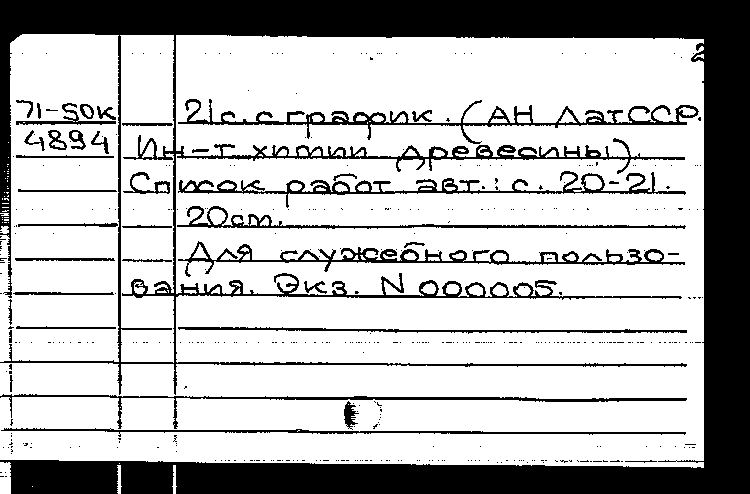 2
71-50к 21с. с график. (АН ЛатССР.
4894 Ин-т химии древесины).
Список работ авт.: с. 20-21.
20см.
Для служебного пользо-
вания. Экз. N 000005.